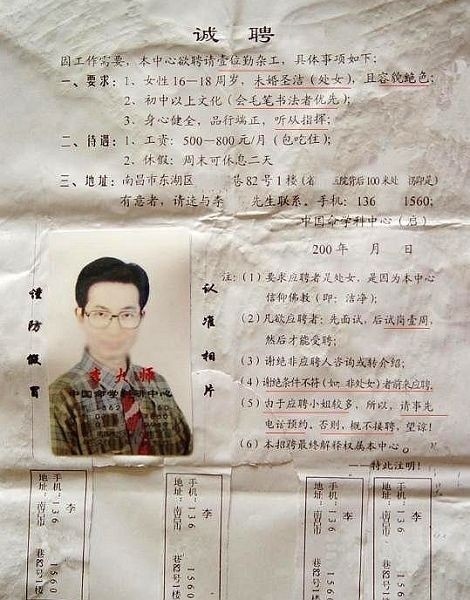 诚聘
因工作需要，本中心欲聘请壹位勤杂工，具体事项如下：
一、要求：1、女性16—18周岁，未婚圣洁（处女），且容貌艳色；
2、初中以上文化（会毛笔书法者优先）；
3、身心健全，品行端正，听从指挥；
二、待遇：1、工资：500—800元/月（包吃住）；
2、休假：周末可休息二天
三、地址：南昌市东湖区 巷82号1楼（省 医院背后100米处
有意者，请速与李 先生联系。手机：136 1560；
中国命学科中心（启）
200 年 月 日
谨防假冒
认准相片
李大师
注：（1）要求应聘者是处女，是因为本中心
信仰佛教（即：洁净）；
（2）凡欲应聘者：先面试，后试岗壹周，
然后才能受聘；
（3）谢绝非应聘人咨询或转介绍；
（4）谢绝条件不符（如：非处女）者前来应聘，
（5）由于应聘小姐较多，所以，请事先
电话预约，否则，概不接聘，望谅！
（6）本招聘最终解释权属本中心。
——特此注明！
李
手机：136 1560
地址：南昌市 巷82号1楼
李
手机：136 1560
地址：南昌市 巷82号1楼
李
手机：136 1560
地址：南昌市 巷82号1楼
李
手机：136 1560
地址：南昌市 巷82号1楼